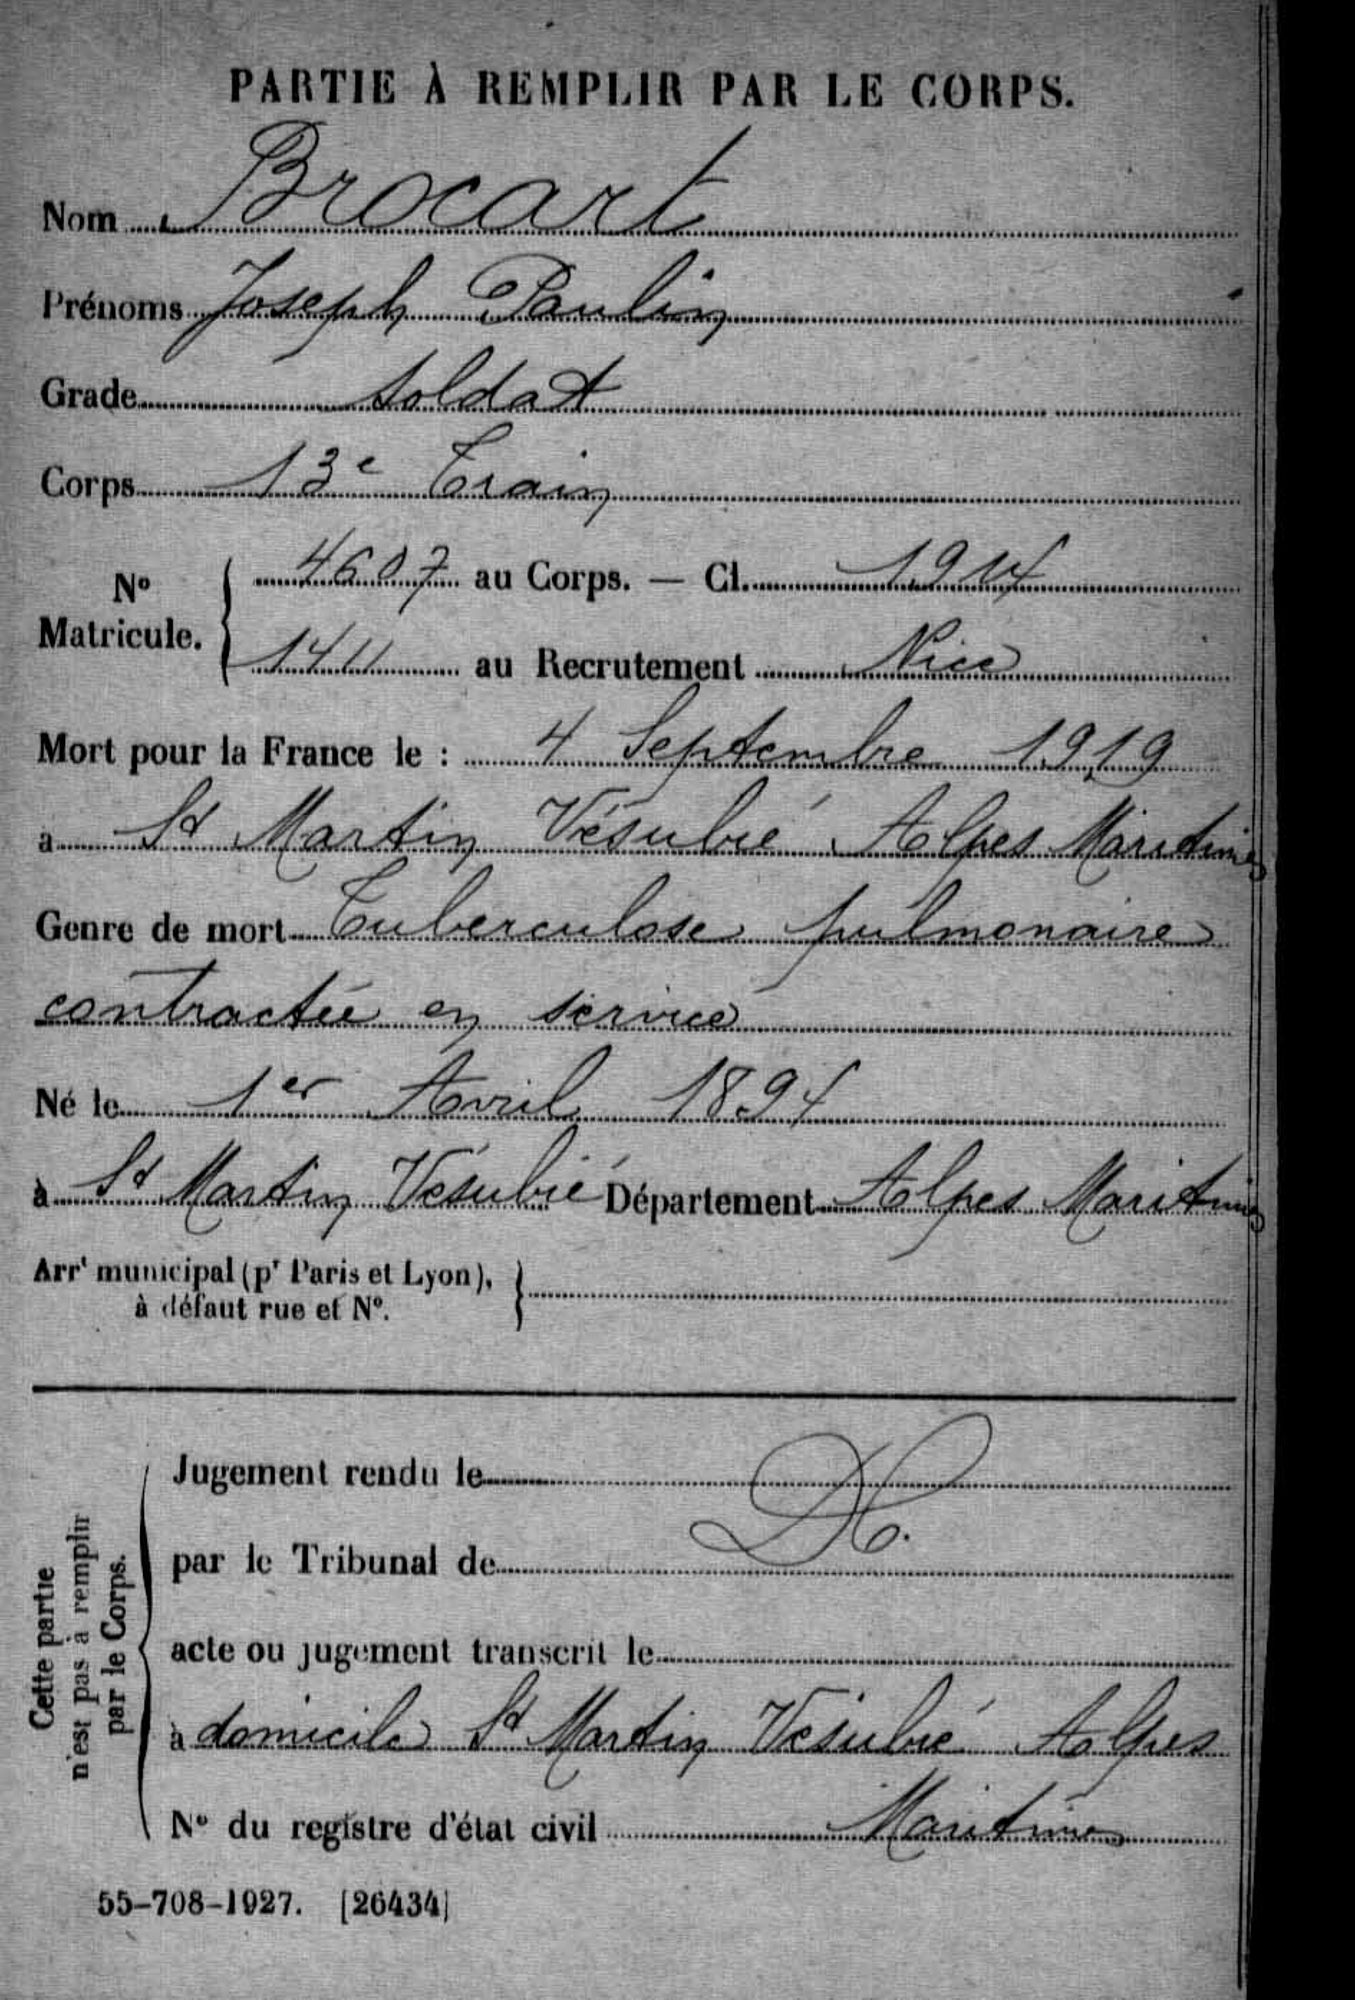 PARTIE À REMPLIR PAR LE CORPS.
Nom Brocart
Prénoms Joseph Paulin
Grade soldat
Corps 13e Train
No Matricule. { 4607 au Corps. — Cl. 1914
1411 au Recrutement Nice
Mort pour la France le : 4 Septembre 1919
a St Martin Vésubié Alpes Maritimes
Genre de mort Tuberculose pulmonaire
contractée en service
Né le 1er Avril 1894
à St Martin Vésubié Département Alpes Maritimes
Arrt municipal (pr Paris et Lyon),
à défaut rue et No.
Cette partie
n'est pas à remplir
par le Corps.
Jugement rendu le
par le Tribunal de
acte ou jugement transcrit le
à domicile St Martin Vésubié Alpes
No du registre d'état civil Maritimes
55-708-1927. [26434]